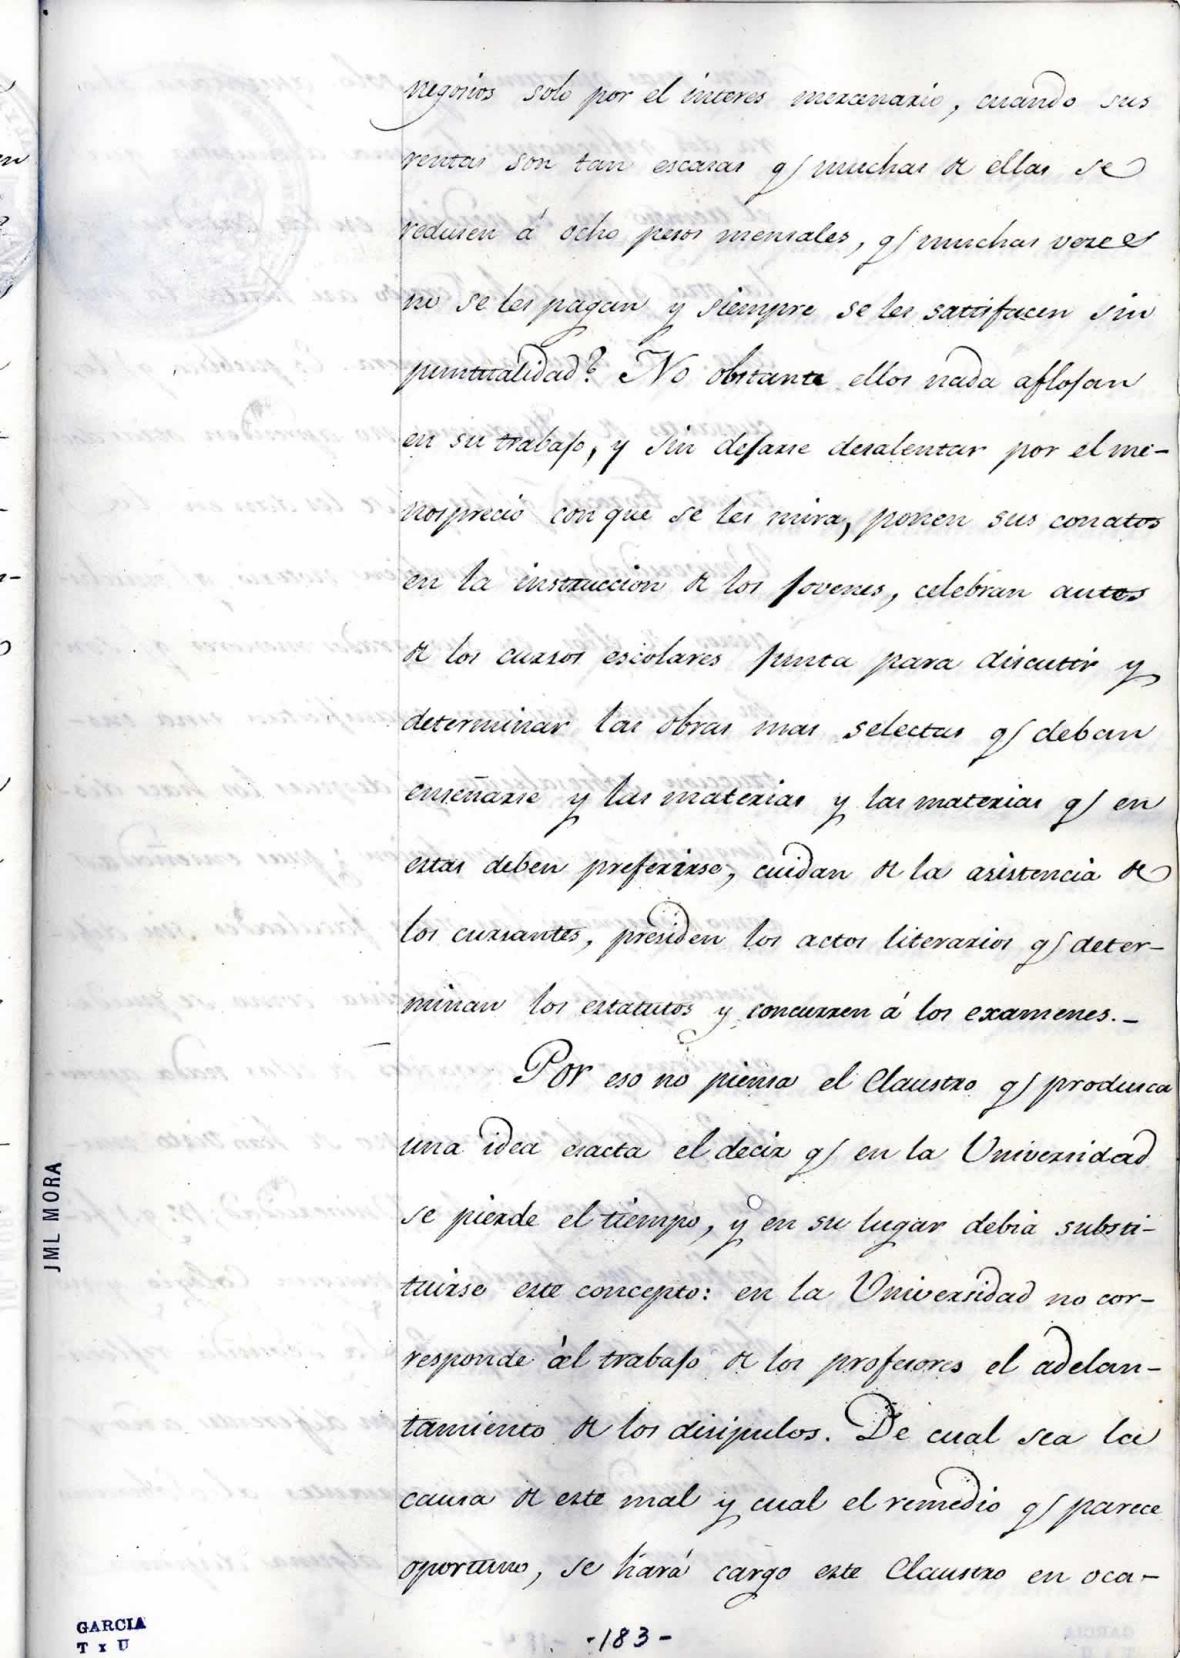 negosios solo por el interes mercenario, cuando sus
rentas son tan escasas q/ muchas de ellas se
redusen á ocho pesos mensales, q/ muchas vezes
no se les pagan y siempre se les sattisfacen sin
puntualidad? No obstante ellos nada aflojan
en su trabajo, y sin dejarse desalentar por el me-
nosprecio con que se les mira, ponen sus conatos
en la instruccion de los jovenes, celebran antes
de los cursos escolares junta para discutir y
determinar las obras mas selectas q/ deban
enseñarse y las materias y las materias q/ en
estas deben preferirse, cuidan de la asistencia de
los cursantes, presiden los actos literarios q/ deter-
minan los estatutos y concurren á los examenes.-
Por eso no piensa el Claustro q/ produsca
una idea esacta el decir q/ en la Universidad
se pierde el tiempo, y en su lugar debia substi-
tuirse este concepto: en la Universidad no cor-
responde ál trabajo de los profesores el adelan-
tamiento de los disipulos. De cual sea la
causa de este mal y cual el remedio q/ parece
oportuno, se hará cargo este Claustro en oca-
JML MORA
GARCIA
T x U
-183-